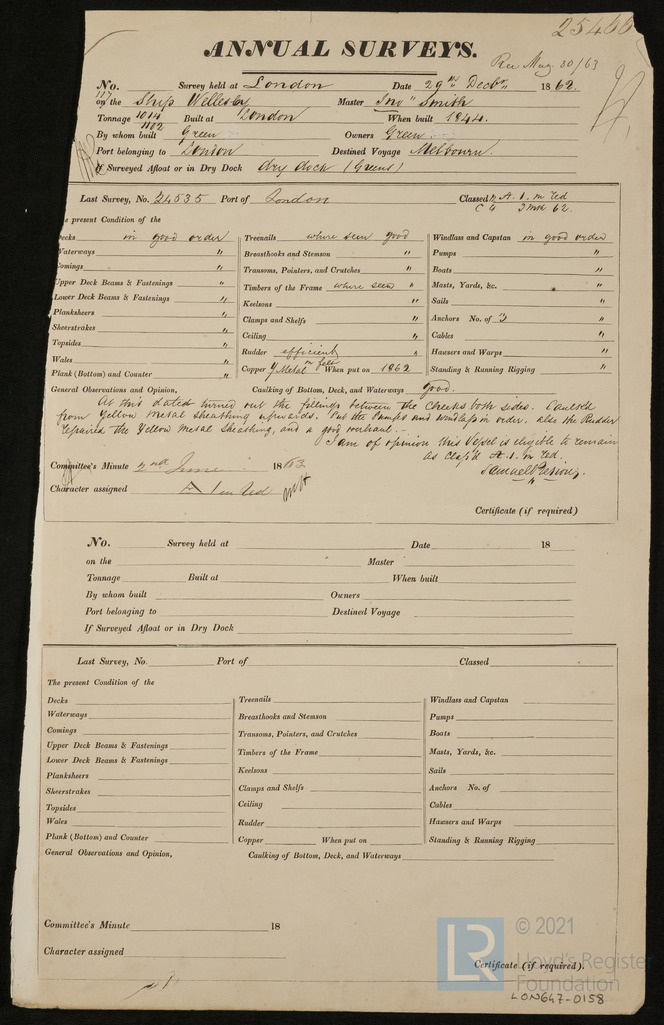 25466
ANNUAL SURVEYS.
Rec May 30/63
No. 117 Survey held at London Date 29th Decbr 1862.
on the Ship Wellesley Master Jno Smith
Tonnage 1014 1102 Built at London When built 1844.
By whom built Green Owners Green
Port belonging to London Destined Voyage Melbourn.
If Surveyed Afloat or in Dry Dock dry dock (Greens)
Last Survey, No. 24535 Port of London Classed A.1. in red
3 62.
The present Condition of the
Decks in good order Treenails where seen good Windlass and Capstan in good order
Waterways " Breasthooks and Stemson " Pumps "
Comings " Transoms, Pointers, and Crutches " Boats "
Upper Deck Beams & Fastenings " Timbers of the Frame where seen " Masts, Yards, &c. "
Lower Deck Beams & Fastenings " Keelsons " Sails "
Planksheers " Clamps and Shelfs " Anchors No. of 3 "
Sheerstrakes " Ceiling " Cables "
Topsides " Rudder efficient " Hawsers and Warps "
Wales " Copper Y Metal on felt When put on 1862 Standing & Running Rigging "
Plank (Bottom) and Counter "
General Observations and Opinion, Caulking of Bottom, Deck, and Waterways good.
At this dated turned out the fillings between the cheeks both sides. Caulked
from Yellow Metal Sheathing upwards. Put the Pumps and windlass in order. also the Rudder
repaired the Yellow Metal Sheathing, and a good overhaul.
I am of opinion this Vessel is eligible to remain
as Class'd A.1. in red.
Samuel
Committee's Minute 2nd June 1863
Character assigned A 1 in Red
Certificate (if required)
No. Survey held at Date 18
on the Master
Tonnage Built at When built
By whom built Owners
Port belonging to Destined Voyage
If Surveyed Afloat or in Dry Dock
Last Survey, No. Port of Classed
The present Condition of the
Decks Treenails Windlass and Capstan
Waterways Breasthooks and Stemson Pumps
Comings Transoms, Pointers, and Crutches Boats
Upper Deck Beams & Fastenings Timbers of the Frame Masts, Yards, &c.
Lower Deck Beams & Fastenings Keelsons Sails
Planksheers Clamps and Shelfs Anchors No. of
Sheerstrakes Ceiling Cables
Topsides Rudder Hawsers and Warps
Wales Copper When put on Standing & Running Rigging
Plank (Bottom) and Counter
General Observations and Opinion, Caulking of Bottom, Deck, and Waterways
Committee's Minute 18
Character assigned
Certificate (if required).
LR © 2021
Lloyd's Register
Foundation
LON647-0158